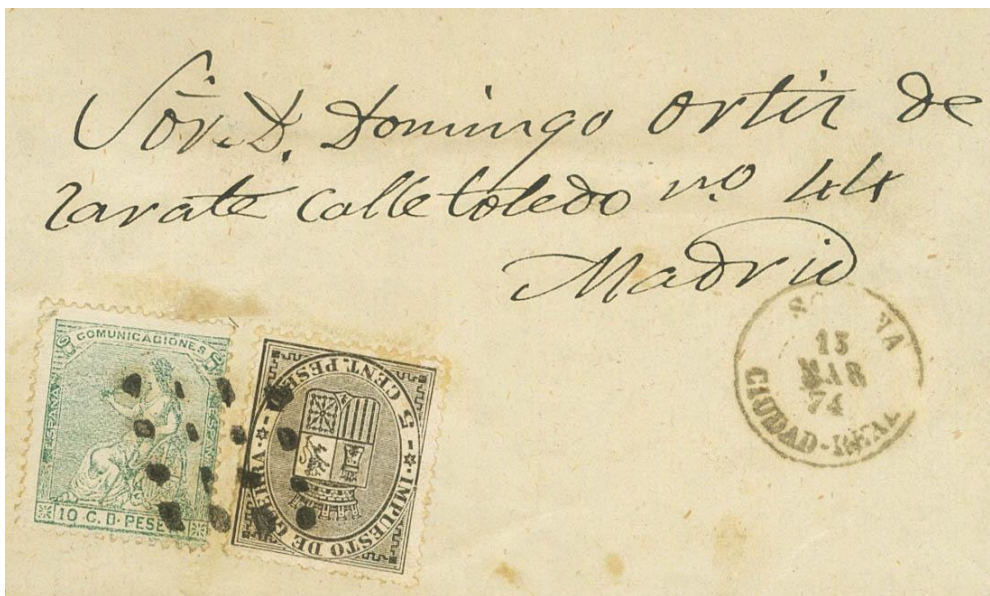 Sor. D. Domingo Ortiz de
Zarate Calle toledo no. 44
Madrid
COMUNICACIONES
ESPAÑA
10 C. D. PESETA
IMPUESTO DE GUERRA
5 CENT. PESETA
15
MAR
74
CIUDAD-REAL